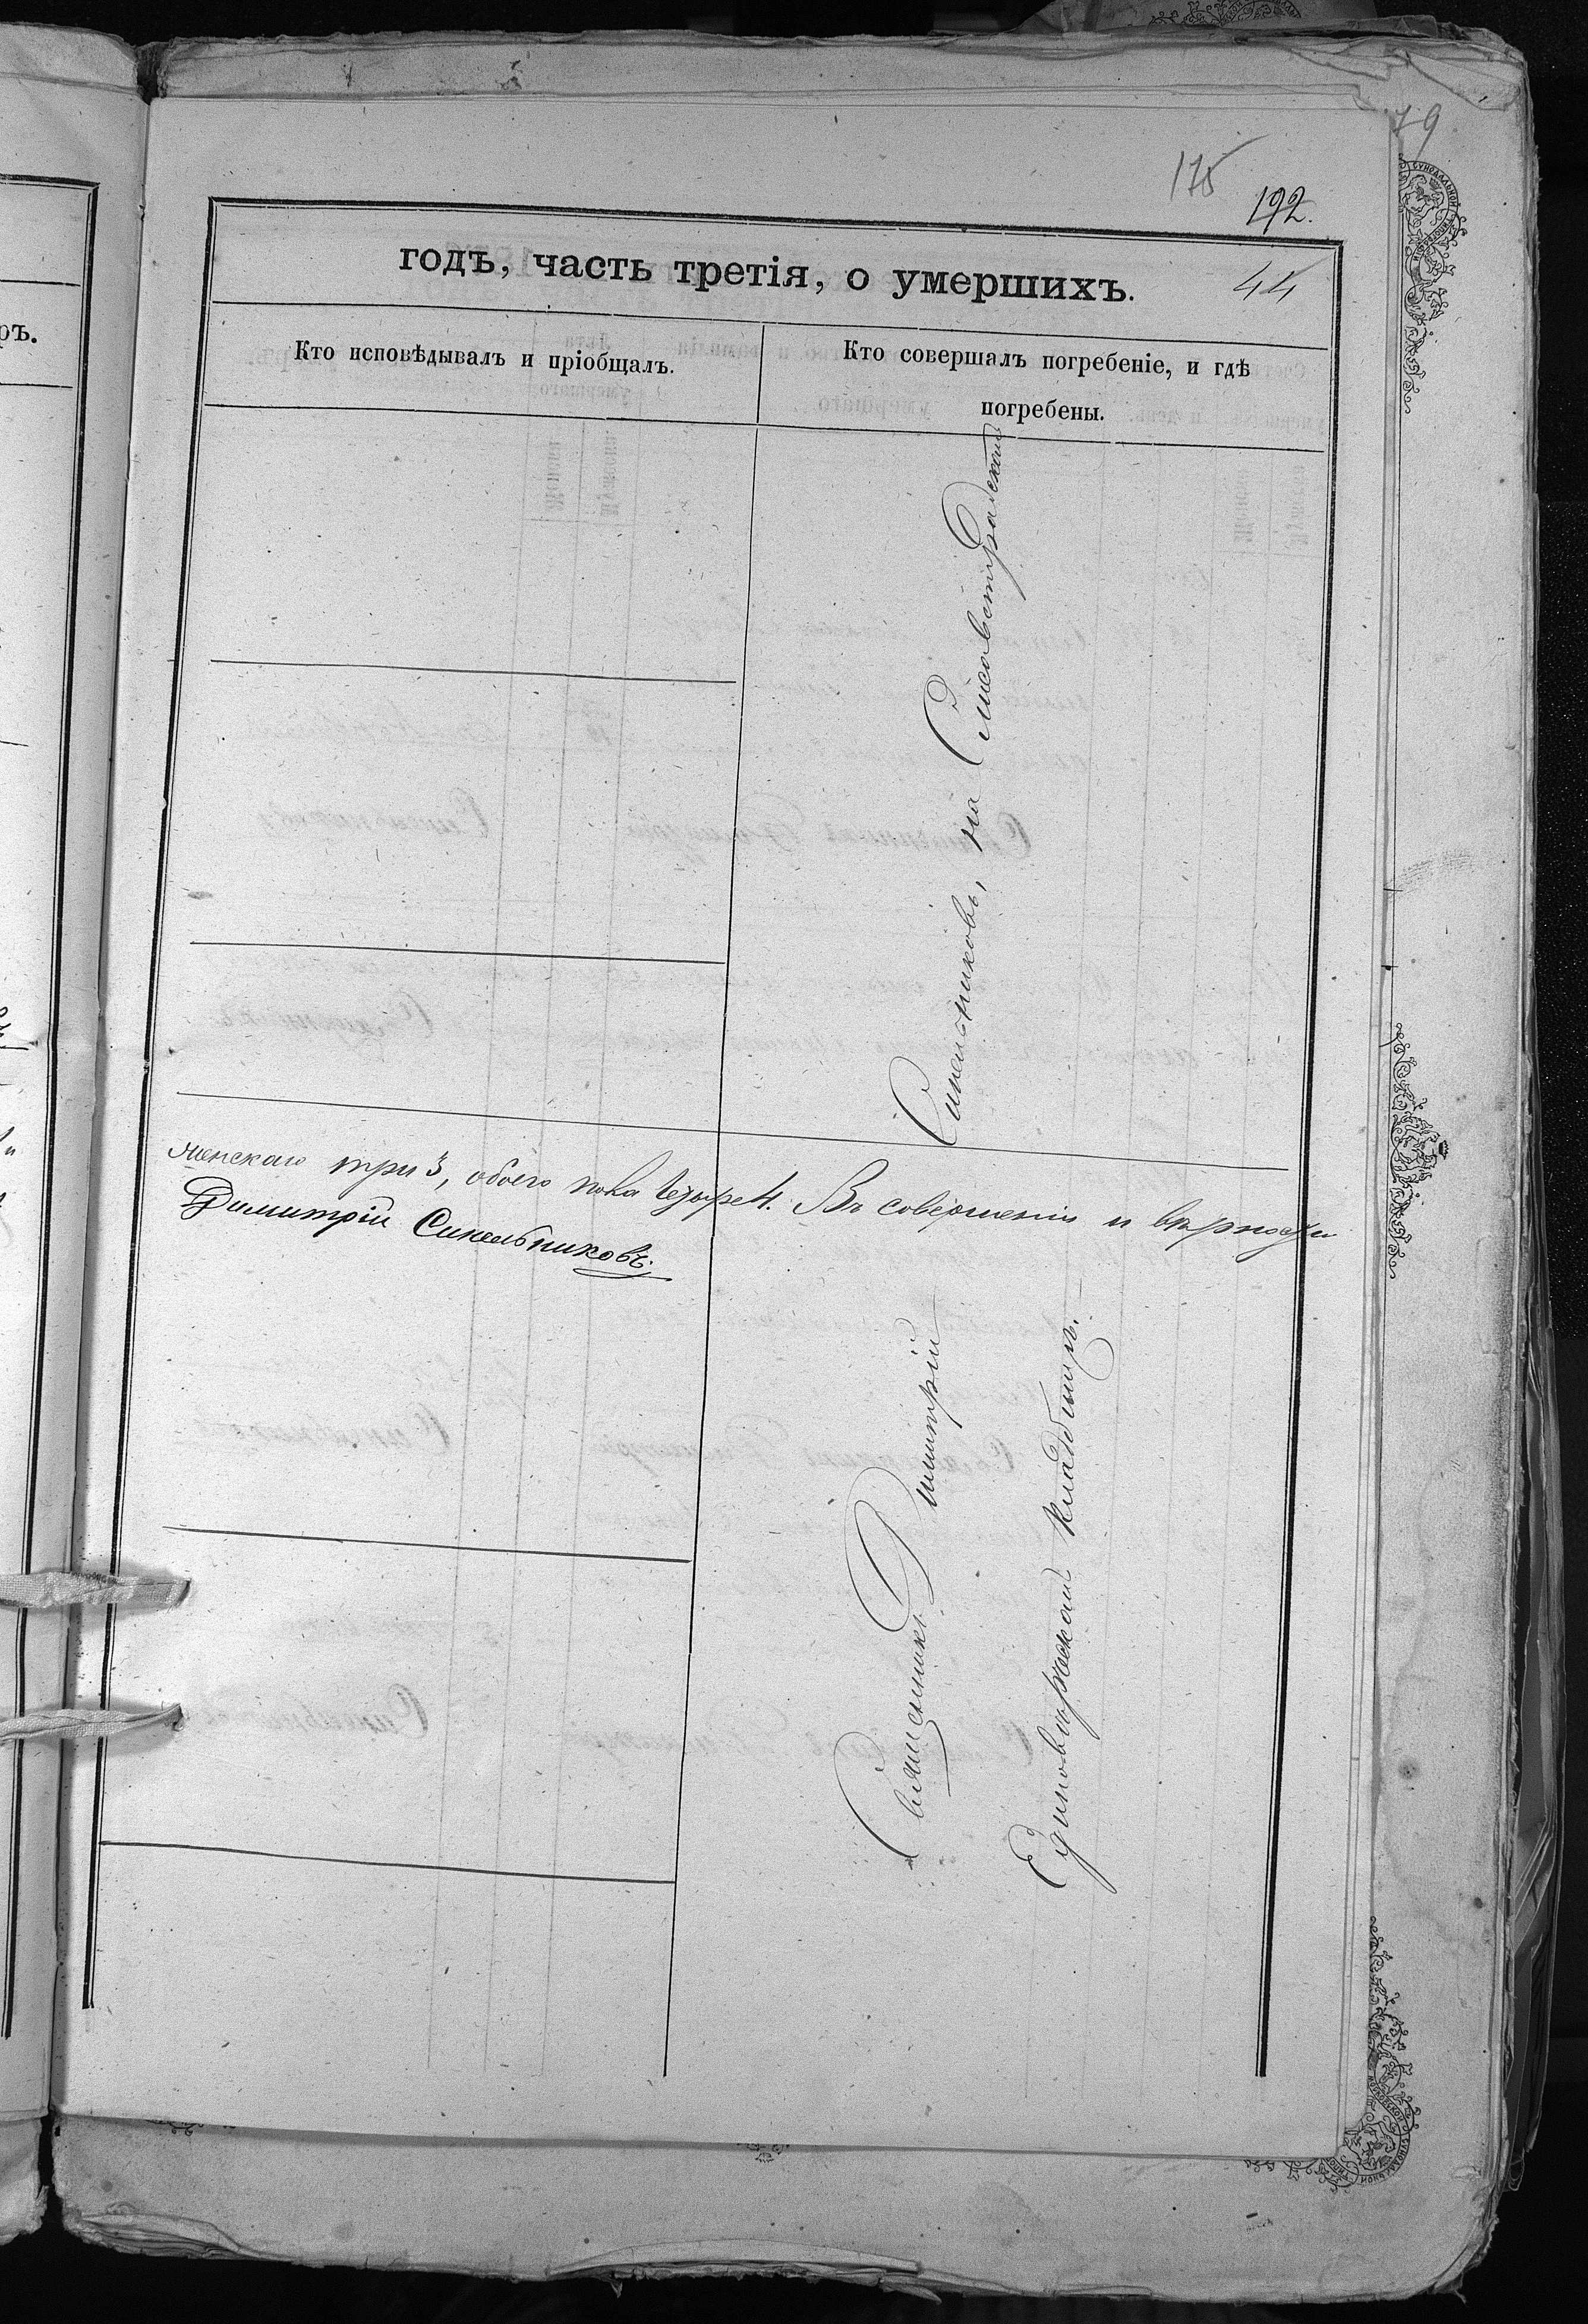 79
175
192.
годъ, часть третія, о умершихъ.
44
Кто исповѣдывалъ и пріобщалъ.
Кто совершалъ погребеніе, и гдѣ
погребены.
женскаго три 3, обоего пола четыре 4. Въ совершеніи и вѣрности
Димитрій Синельниковъ.
Священникъ Димитрій Синельниковъ, на Елисаветградскомъ
Единовѣрческомъ кладбищѣ.
ръ.